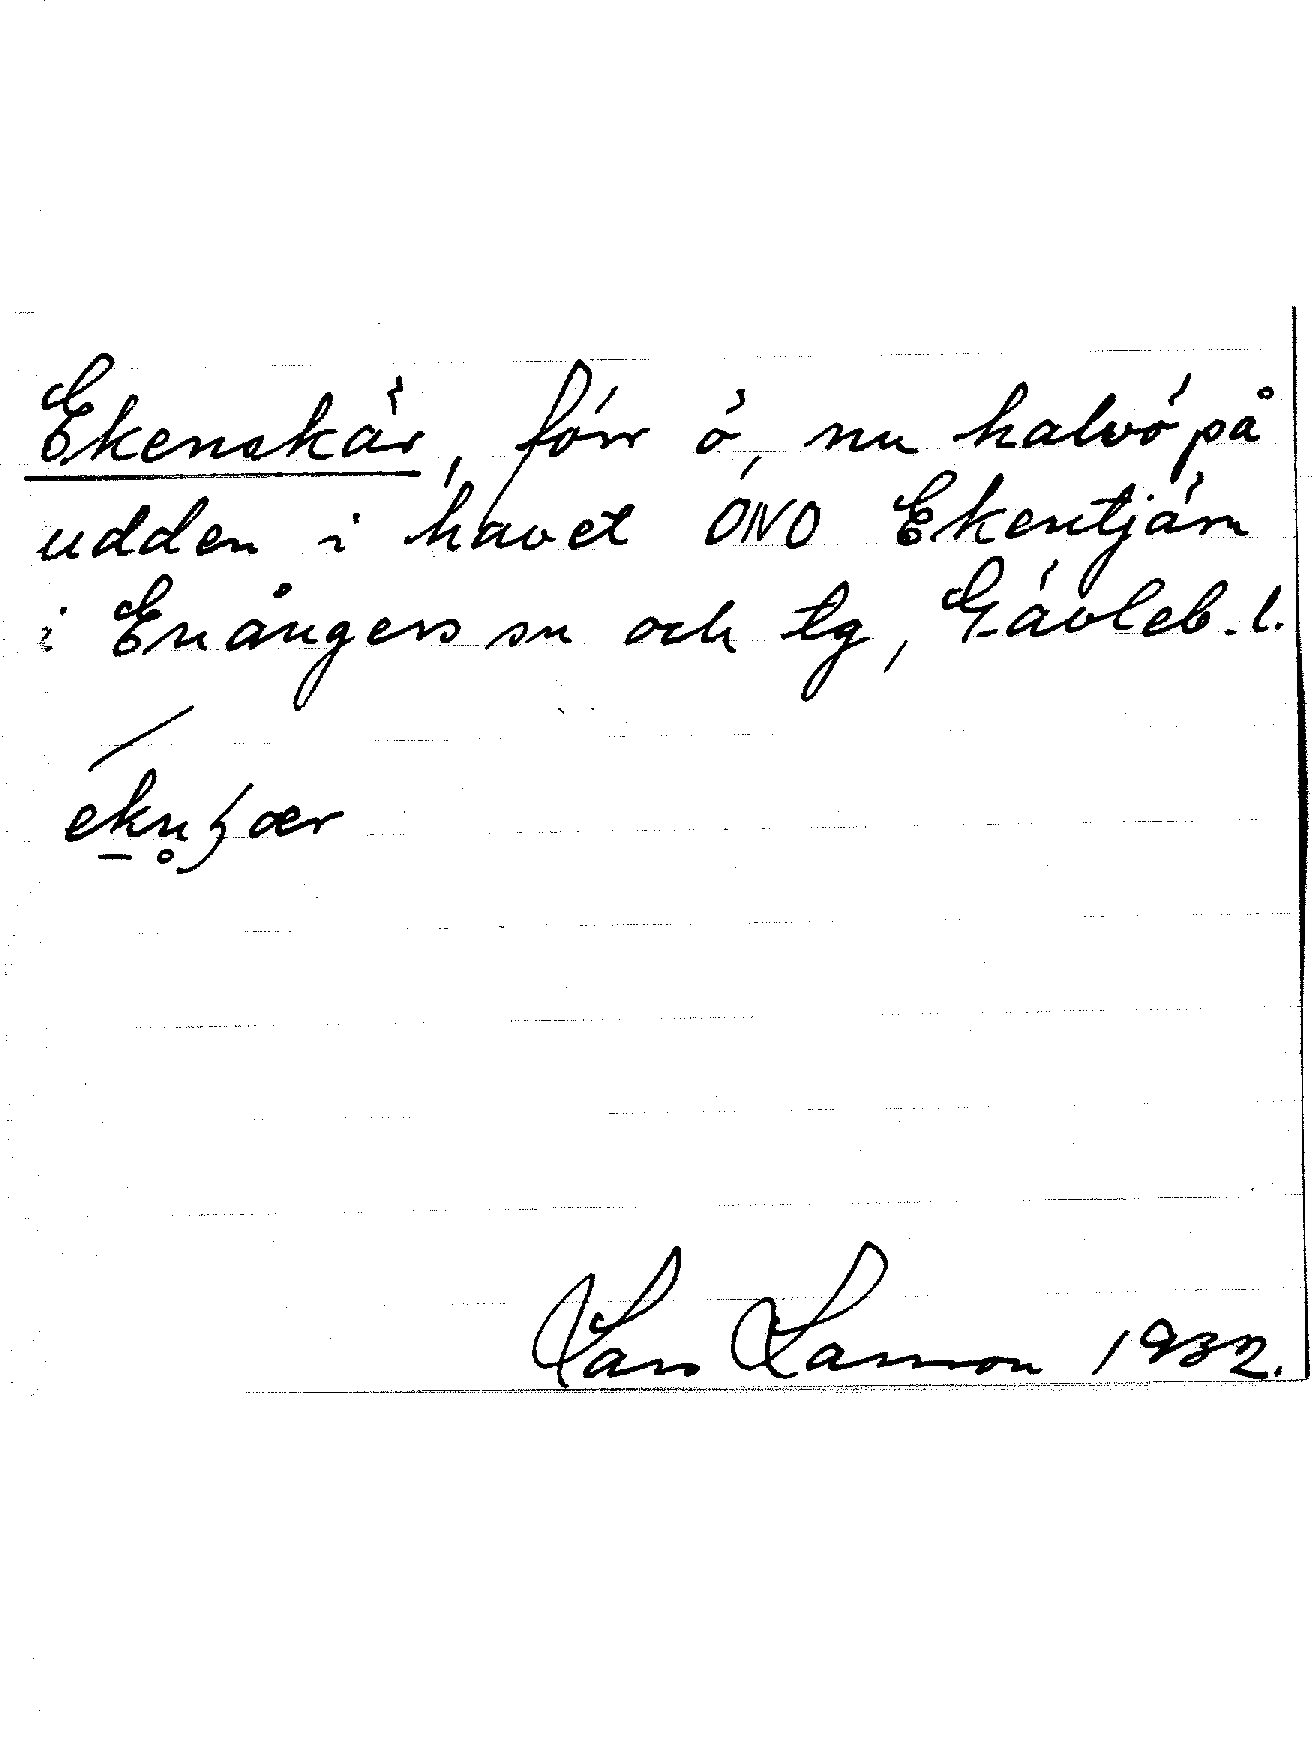 Ekenskär, förr ö, nu halvö på
udden i havet ONO Ekentjärn
i Enångers sn och tg, Gävleb. l.
Lars Larsson 1932.